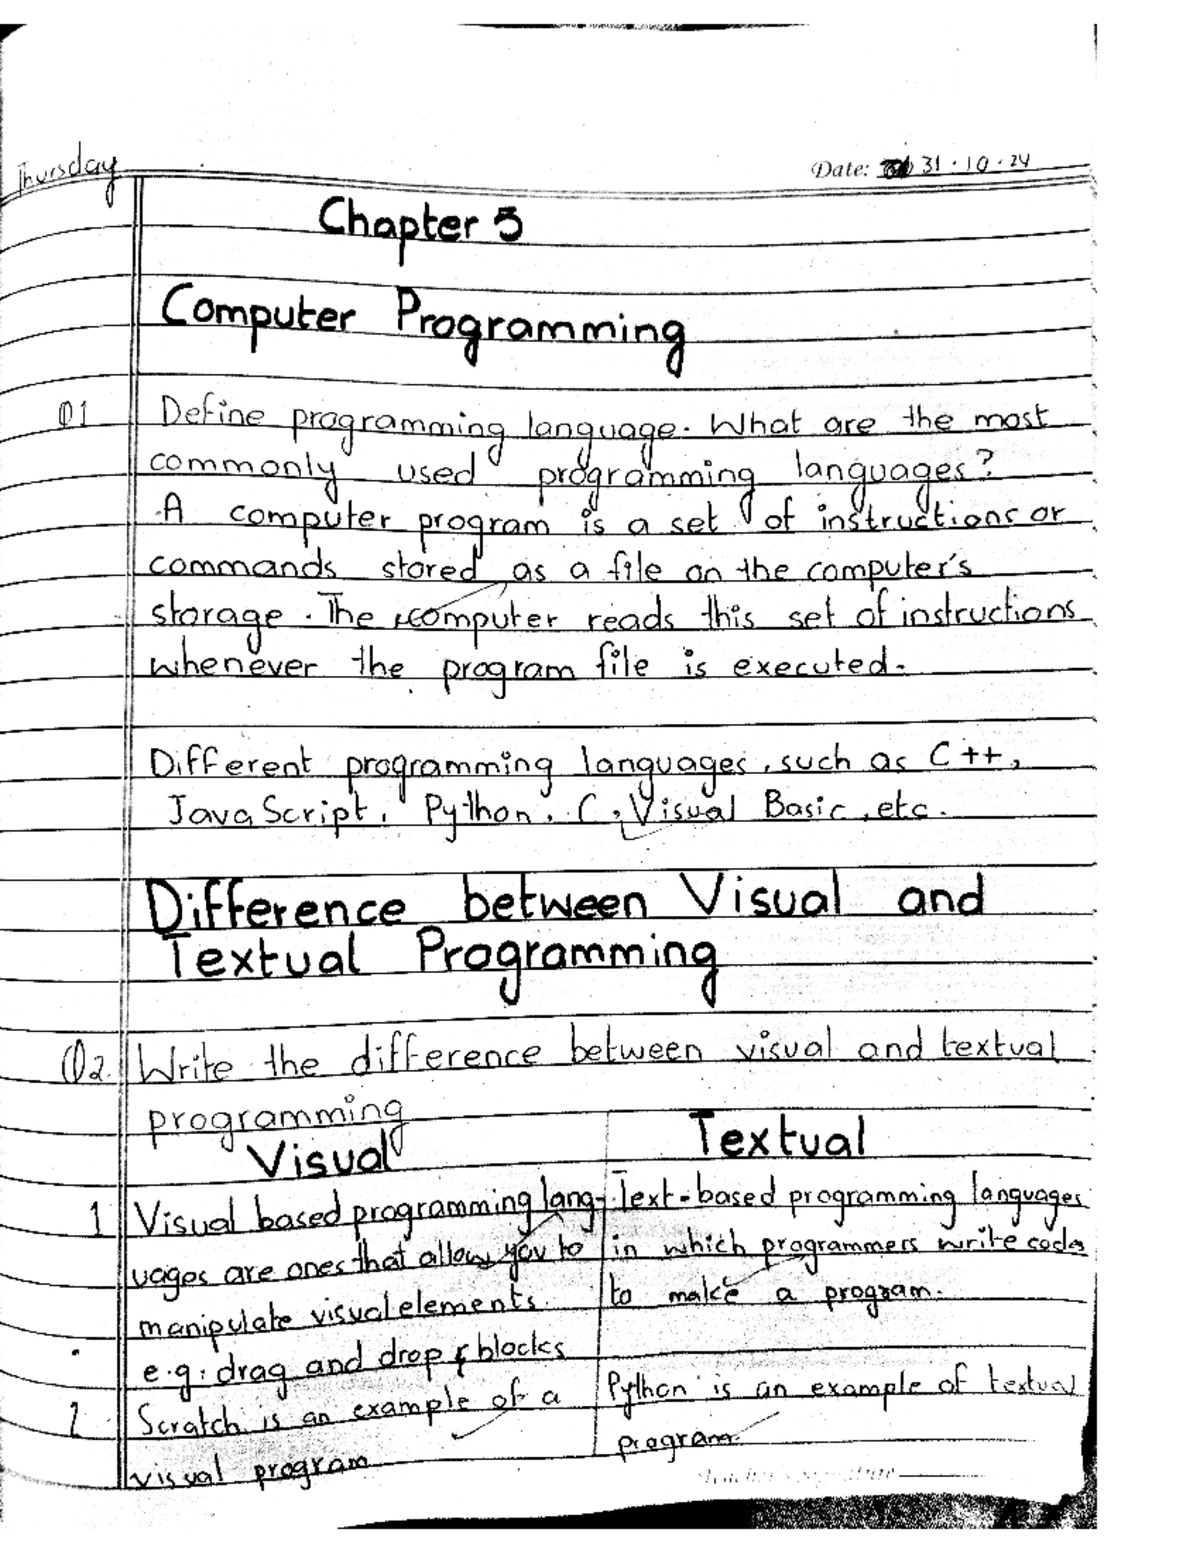 Thursday
Date: 31.10.24
Chapter 5
Computer Programming
Q1 Define programming language. What are the most
commonly used programming languages?
A computer program is a set of instructions or
commands stored as a file on the computer's
storage. The computer reads this set of instructions
whenever the program file is executed.
Different programming languages, such as C++,
JavaScript, Python, C, Visual Basic, etc.
Difference between Visual and
Textual Programming
Q2. Write the difference between visual and textual
programming
Visual
1 Visual based programming lang-
uages are ones that allow you to
manipulate visual elements.
e.g: drag and drop blocks
2 Scratch is an example of a
visual program
Textual
Text-based programming languages
in which programmers write code
to make a program.
Python is an example of textual
program.
Teacher's Signature